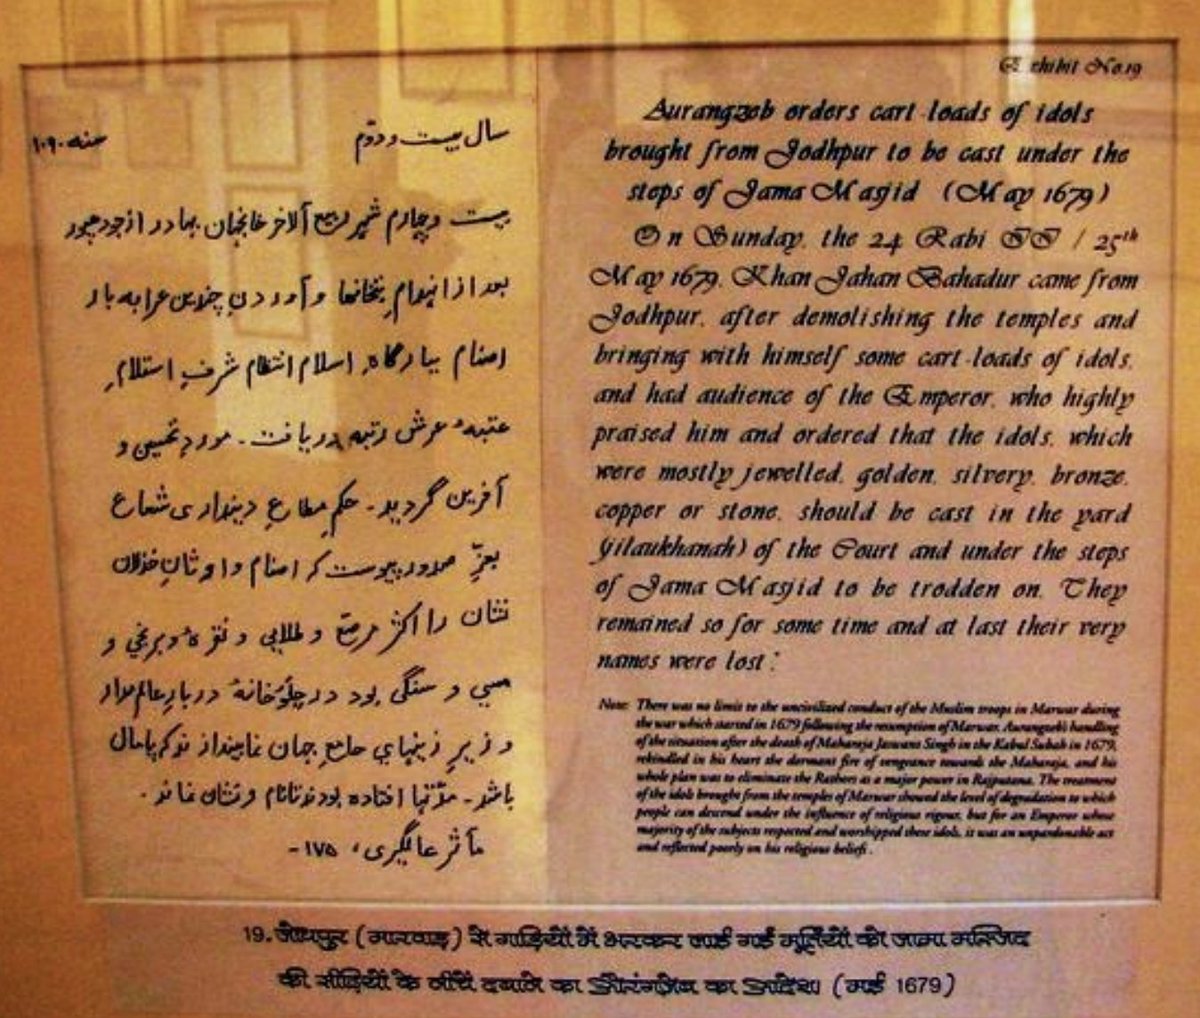 سال بیست و دوّم سنه ۱۰۹۰
بیست و چهارم شهر ربیع الآخر خانجهان بهادر از جودهپور
بعد از انهدام بتخانها و آوردن چندین عرابه بار
اصنام ببارگاهِ اسلام انتظام شرفِ استلامِ
عتبهٔ عرش رتبه دریافت - موردِ تحسین و
آفرین گردید - حکمِ مطاعِ دینداری شعاع
بعزِّ صدور پیوست که اصنام و اوثانِ خذلان
نشان را اکثر مرصّع و طلایی و نقره و برنجی و
مسی و سنگی بود در جلوخانهٔ دربارِ عالم مدار
و زیرِ زینهای جامعِ جهان نما بیندازند که پامال
باشد - مدّتها افتاده بودند تا نام و نشان نماند ۔
مآثر عالمگیری، ۱۷۵ -
Exhibit No.19
Aurangzeb orders cart-loads of idols
brought from Jodhpur to be cast under the
steps of Jama Masjid (May 1679)
On Sunday, the 24 Rabi II / 25th
May 1679, Khan Jahan Bahadur came from
Jodhpur, after demolishing the temples and
bringing with himself some cart-loads of idols,
and had audience of the Emperor, who highly
praised him and ordered that the idols, which
were mostly jewelled, golden, silvery, bronze,
copper or stone, should be cast in the yard
(jilaukhanah) of the Court and under the steps
of Jama Masjid to be trodden on. They
remained so for some time and at last their very
names were lost.
Note: There was no limit to the uncivilized conduct of the Muslim troops in Marwar during
the war which started in 1679 following the resumption of Marwar. Aurangzeb's handling
of the situation after the death of Maharaja Jaswant Singh in the Kabul Subah in 1679,
rekindled in his heart the dormant fire of vengeance towards the Maharaja, and his
whole plan was to eliminate the Rathors as a major power in Rajputana. The treatment
of the idols brought from the temples of Marwar showed the level of degradation to which
people can descend under the influence of religious rigour, but for an Emperor whose
majority of the subjects respected and worshipped these idols, it was an unpardonable act
and reflected poorly on his religious beliefs.
19. जोधपुर (मारवाड़) से गाड़ियों में भरकर लाई गई मूर्तियों को जामा मस्जिद
की सीढ़ियों के नीचे दबाने का औरंगज़ेब का आदेश। (मई 1679)